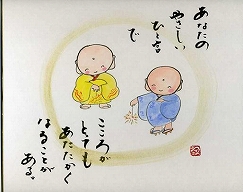 あなたの
やさしい
ひと言
で
こころが
とっても
あたたかく
なることが
ある。